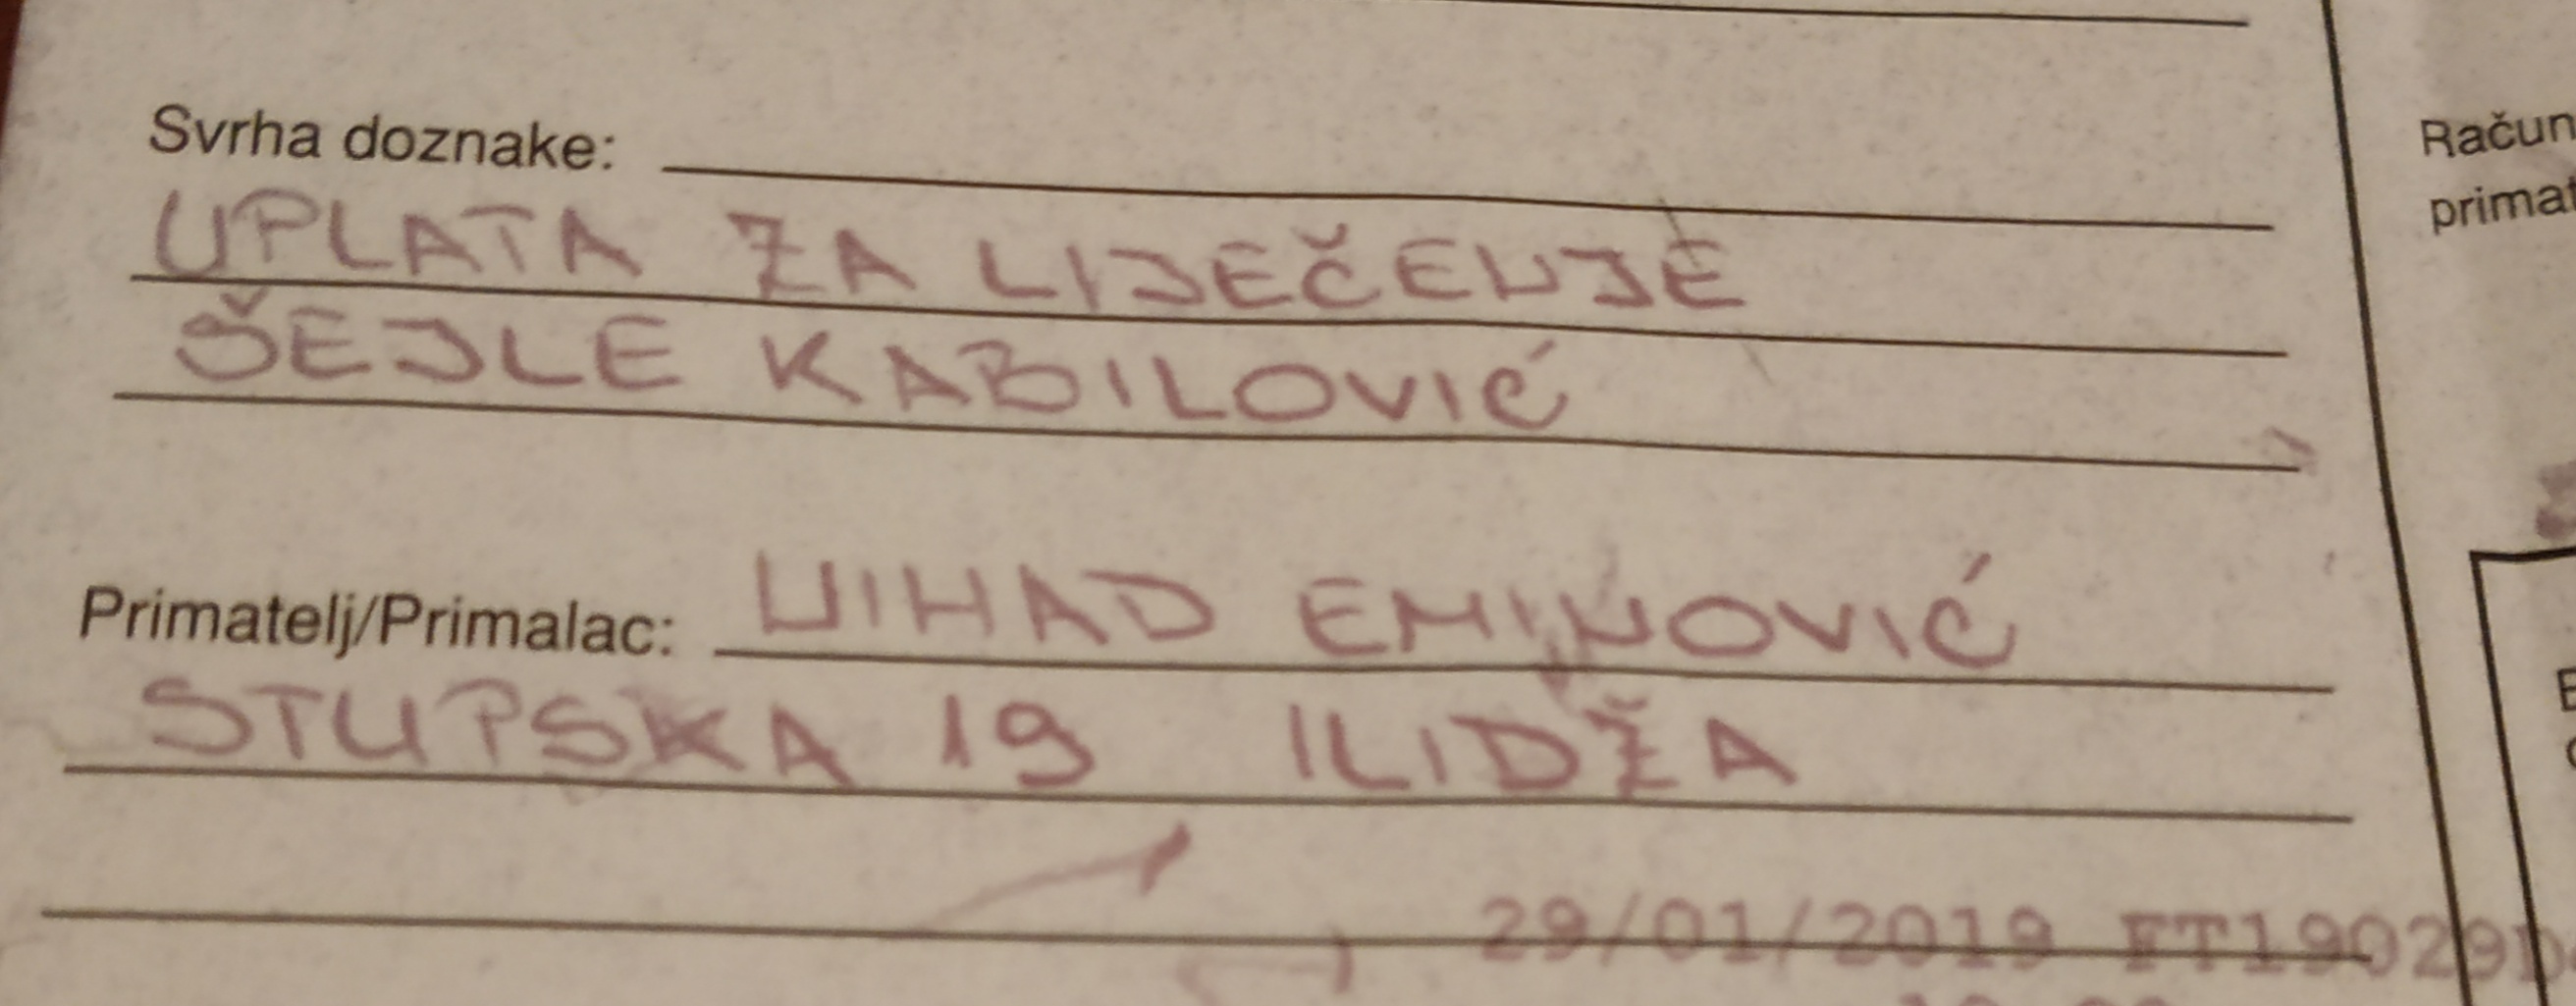 Svrha doznake:
UPLATA ZA LIJEČENJE
ŠEJLE KABILOVIĆ
Primatelj/Primalac: NIHAD EMINOVIĆ
STUPSKA 19 ILIDŽA
29/01/2019 FT19029D
Račun
primat